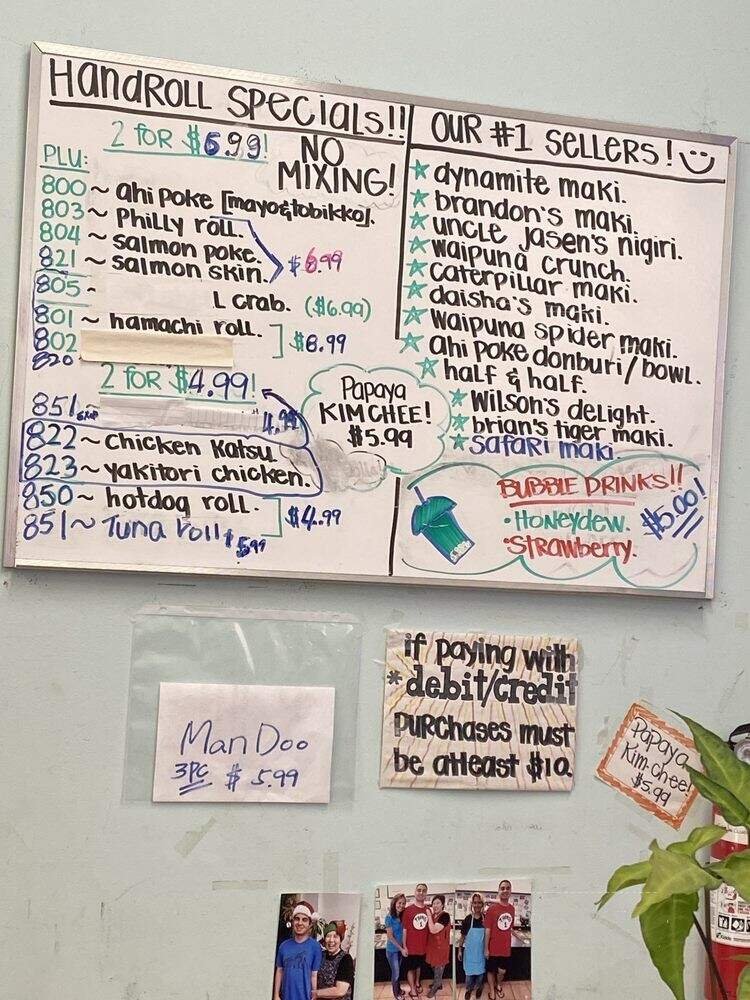 HandROLL SPECIALS!!
2 FOR $6.99!
NO
MIXING!
PLU:
800~ ahi poke [mayo&tobikko].
803~ Philly roll.
804~ salmon poke.
821~ salmon skin. $6.99
805- L crab. ($6.99)
801~ hamachi roll.
802 $8.99
820
2 FOR $4.99!
851~ 4.99
822~ Chicken Katsu
823~ yakitori chicken.
850~ hotdog roll. $4.99
851~ Tuna roll $5.99
Papaya
KIMCHEE!
$5.99
OUR #1 SELLERS!
dynamite maki.
brandon's maki.
uncle jasen's nigiri.
waipuna crunch.
caterpillar maki.
daisha's maki.
Waipuna spider maki.
ahi poke donburi/bowl.
half & half.
Wilson's delight.
brian's tiger maki.
SAFARI maki.
BUBBLE DRINKS!!
•Honeydew. $5.00!
•Strawberry.
Man Doo
3PC $5.99
if paying with
*debit/credit
purchases must
be atleast $10.
Papaya
Kim chee!
$5.99